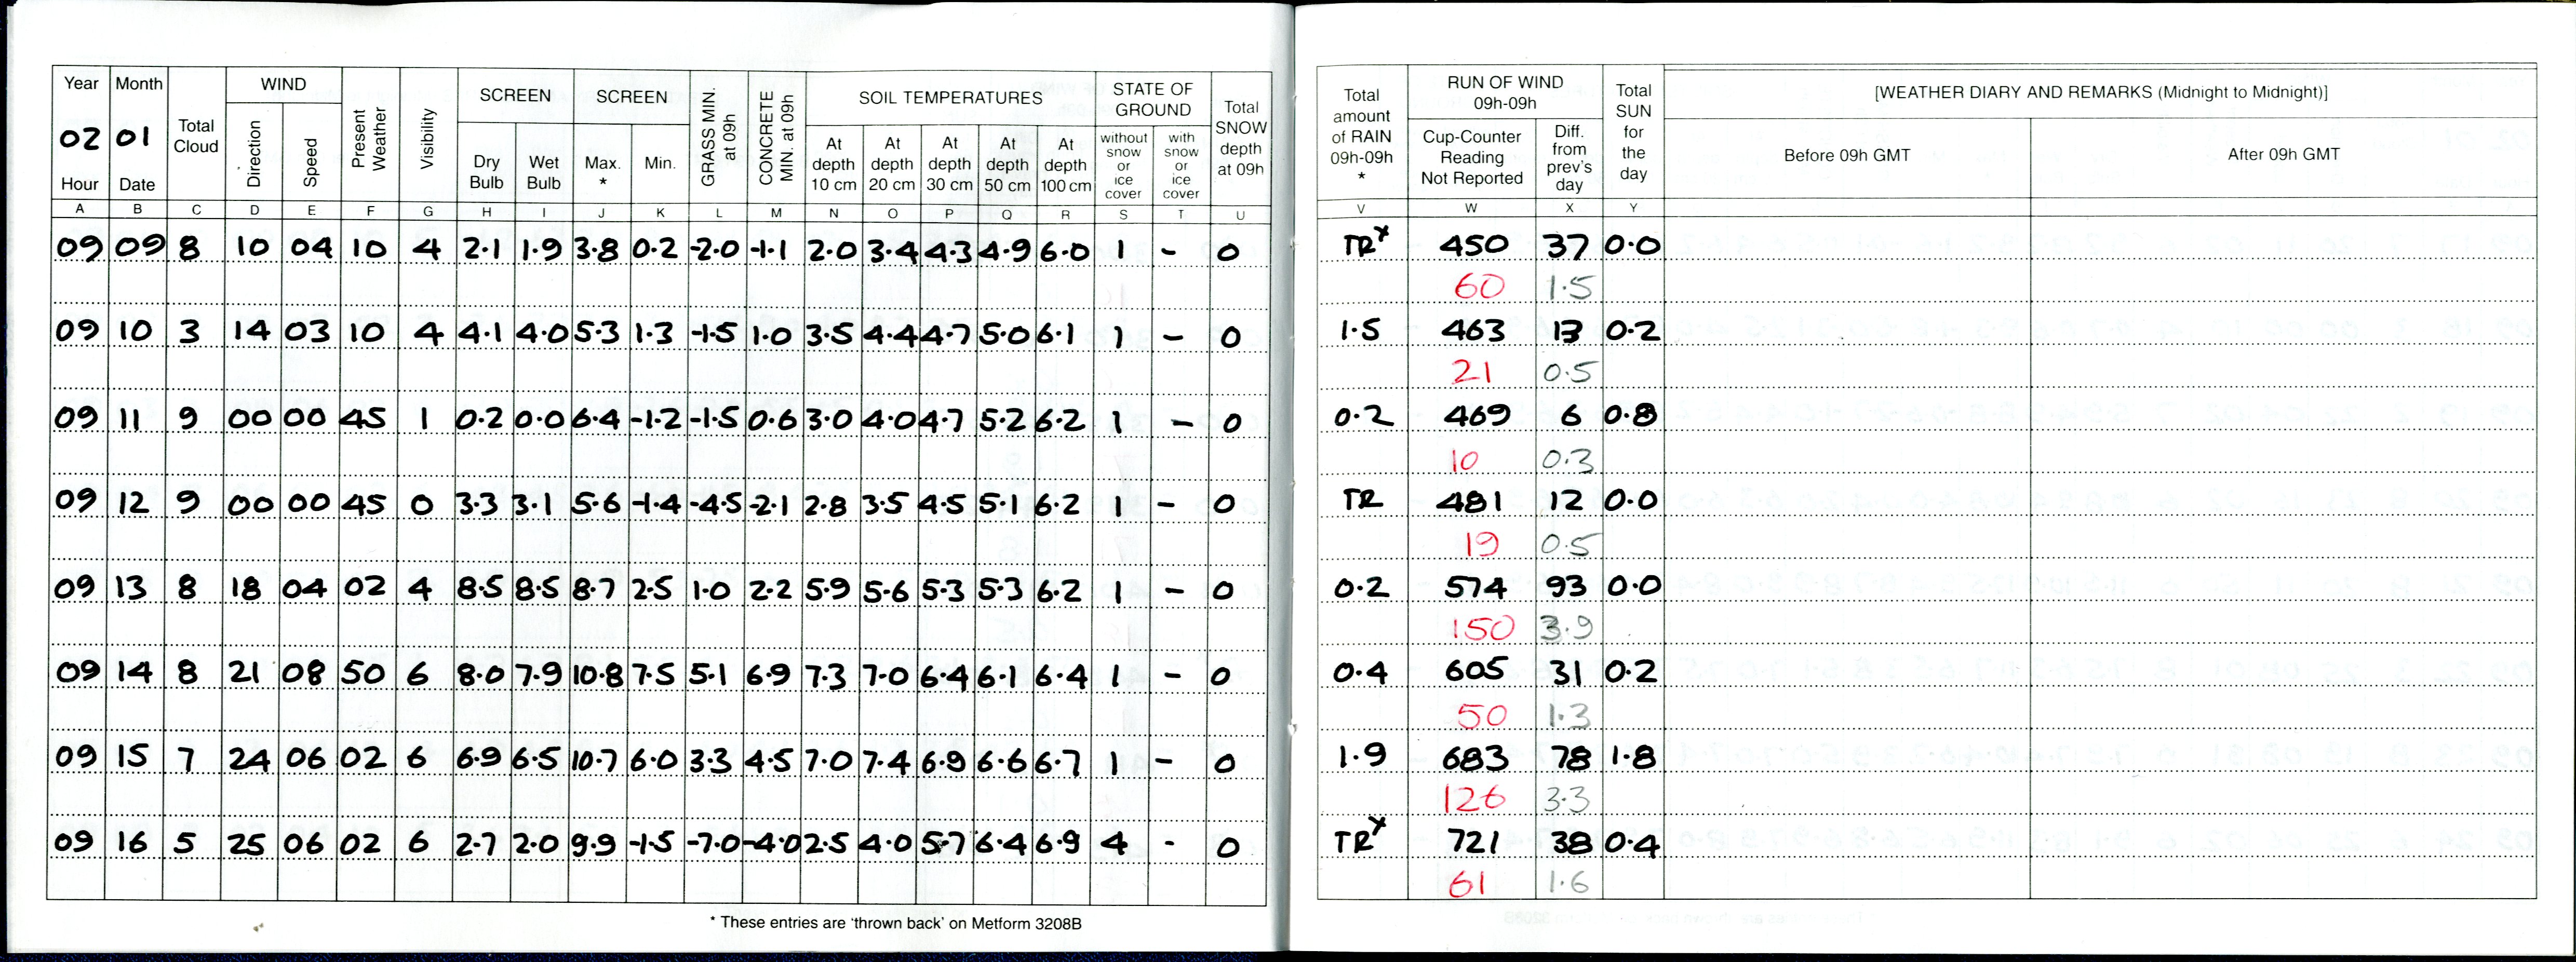 Year Month Total Cloud WIND Present Weather Visibility SCREEN SCREEN GRASS MIN. at 09h CONCRETE MIN. at 09h SOIL TEMPERATURES STATE OF GROUND Total SNOW depth at 09h
02 01 Direction Speed Dry Bulb Wet Bulb Max. * Min. At depth 10 cm At depth 20 cm At depth 30 cm At depth 50 cm At depth 100 cm without snow or ice cover with snow or ice cover
Hour Date
A B C D E F G H I J K L M N O P Q R S T U
09 09 8 10 04 10 4 2.1 1.9 3.8 0.2 -2.0 -1.1 2.0 3.4 4.3 4.9 6.0 1 - 0
09 10 3 14 03 10 4 4.1 4.0 5.3 1.3 -1.5 1.0 3.5 4.4 4.7 5.0 6.1 1 - 0
09 11 9 00 00 45 1 0.2 0.0 6.4 -1.2 -1.5 0.6 3.0 4.0 4.7 5.2 6.2 1 - 0
09 12 9 00 00 45 0 3.3 3.1 5.6 -1.4 -4.5 -2.1 2.8 3.5 4.5 5.1 6.2 1 - 0
09 13 8 18 04 02 4 8.5 8.5 8.7 2.5 1.0 2.2 5.9 5.6 5.3 5.3 6.2 1 - 0
09 14 8 21 08 50 6 8.0 7.9 10.8 7.5 5.1 6.9 7.3 7.0 6.4 6.1 6.4 1 - 0
09 15 7 24 06 02 6 6.9 6.5 10.7 6.0 3.3 4.5 7.0 7.4 6.9 6.6 6.7 1 - 0
09 16 5 25 06 02 6 2.7 2.0 9.9 -1.5 -7.0 -4.0 2.5 4.0 5.7 6.4 6.9 4 - 0
* These entries are 'thrown back' on Metform 3208B
Total amount of RAIN 09h-09h * RUN OF WIND 09h-09h Total SUN for the day [WEATHER DIARY AND REMARKS (Midnight to Midnight)]
Cup-Counter Reading Not Reported Diff. from prev's day Before 09h GMT After 09h GMT
V W X Y
TRx 450 37 0.0
60 1.5
1.5 463 13 0.2
21 0.5
0.2 469 6 0.8
10 0.3
TR 481 12 0.0
19 0.5
0.2 574 93 0.0
150 3.9
0.4 605 31 0.2
50 1.3
1.9 683 78 1.8
126 3.3
TRx 721 38 0.4
61 1.6